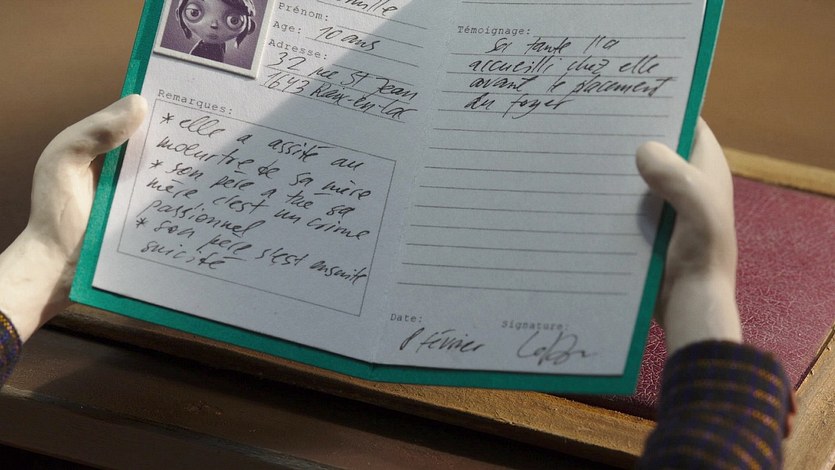 Prénom:
Age: 10 ans
Adresse:
32 rue St Jean
1643
Remarques:
* elle a assité au
moeurtre de sa mère
* son père a tué sa
mère c'est un crime
passionnel
* son père s'est ensuite
suicité
Témoignage:
Sa tante l'a
accueilli chez elle
avant le placement
du foyer
Date:
8 février
Signature: